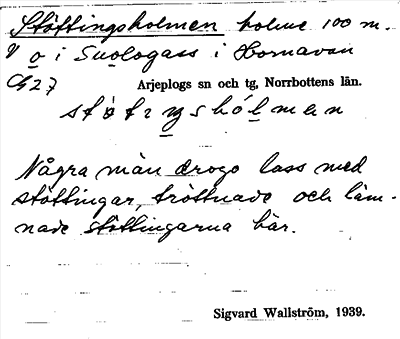 Stöttingsholmen holme 100 m.
V o i Suologass i Hornavan
G27 Arjeplogs sn och tg, Norrbottens län.
Några män drogo lass med
stöttingar, tröttnade och läm-
nade stöttingarna här.
Sigvard Wallström, 1939.